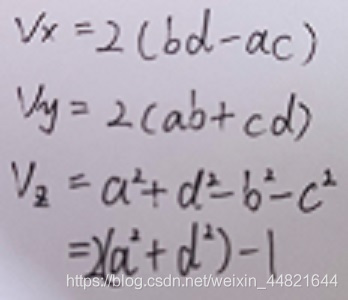 Vx = 2(bd-ac)
Vy = 2(ab+cd)
Vz = a²+d²-b²-c²
=2(a²+d²)-1
https://blog.csdn.net/weixin_44821644